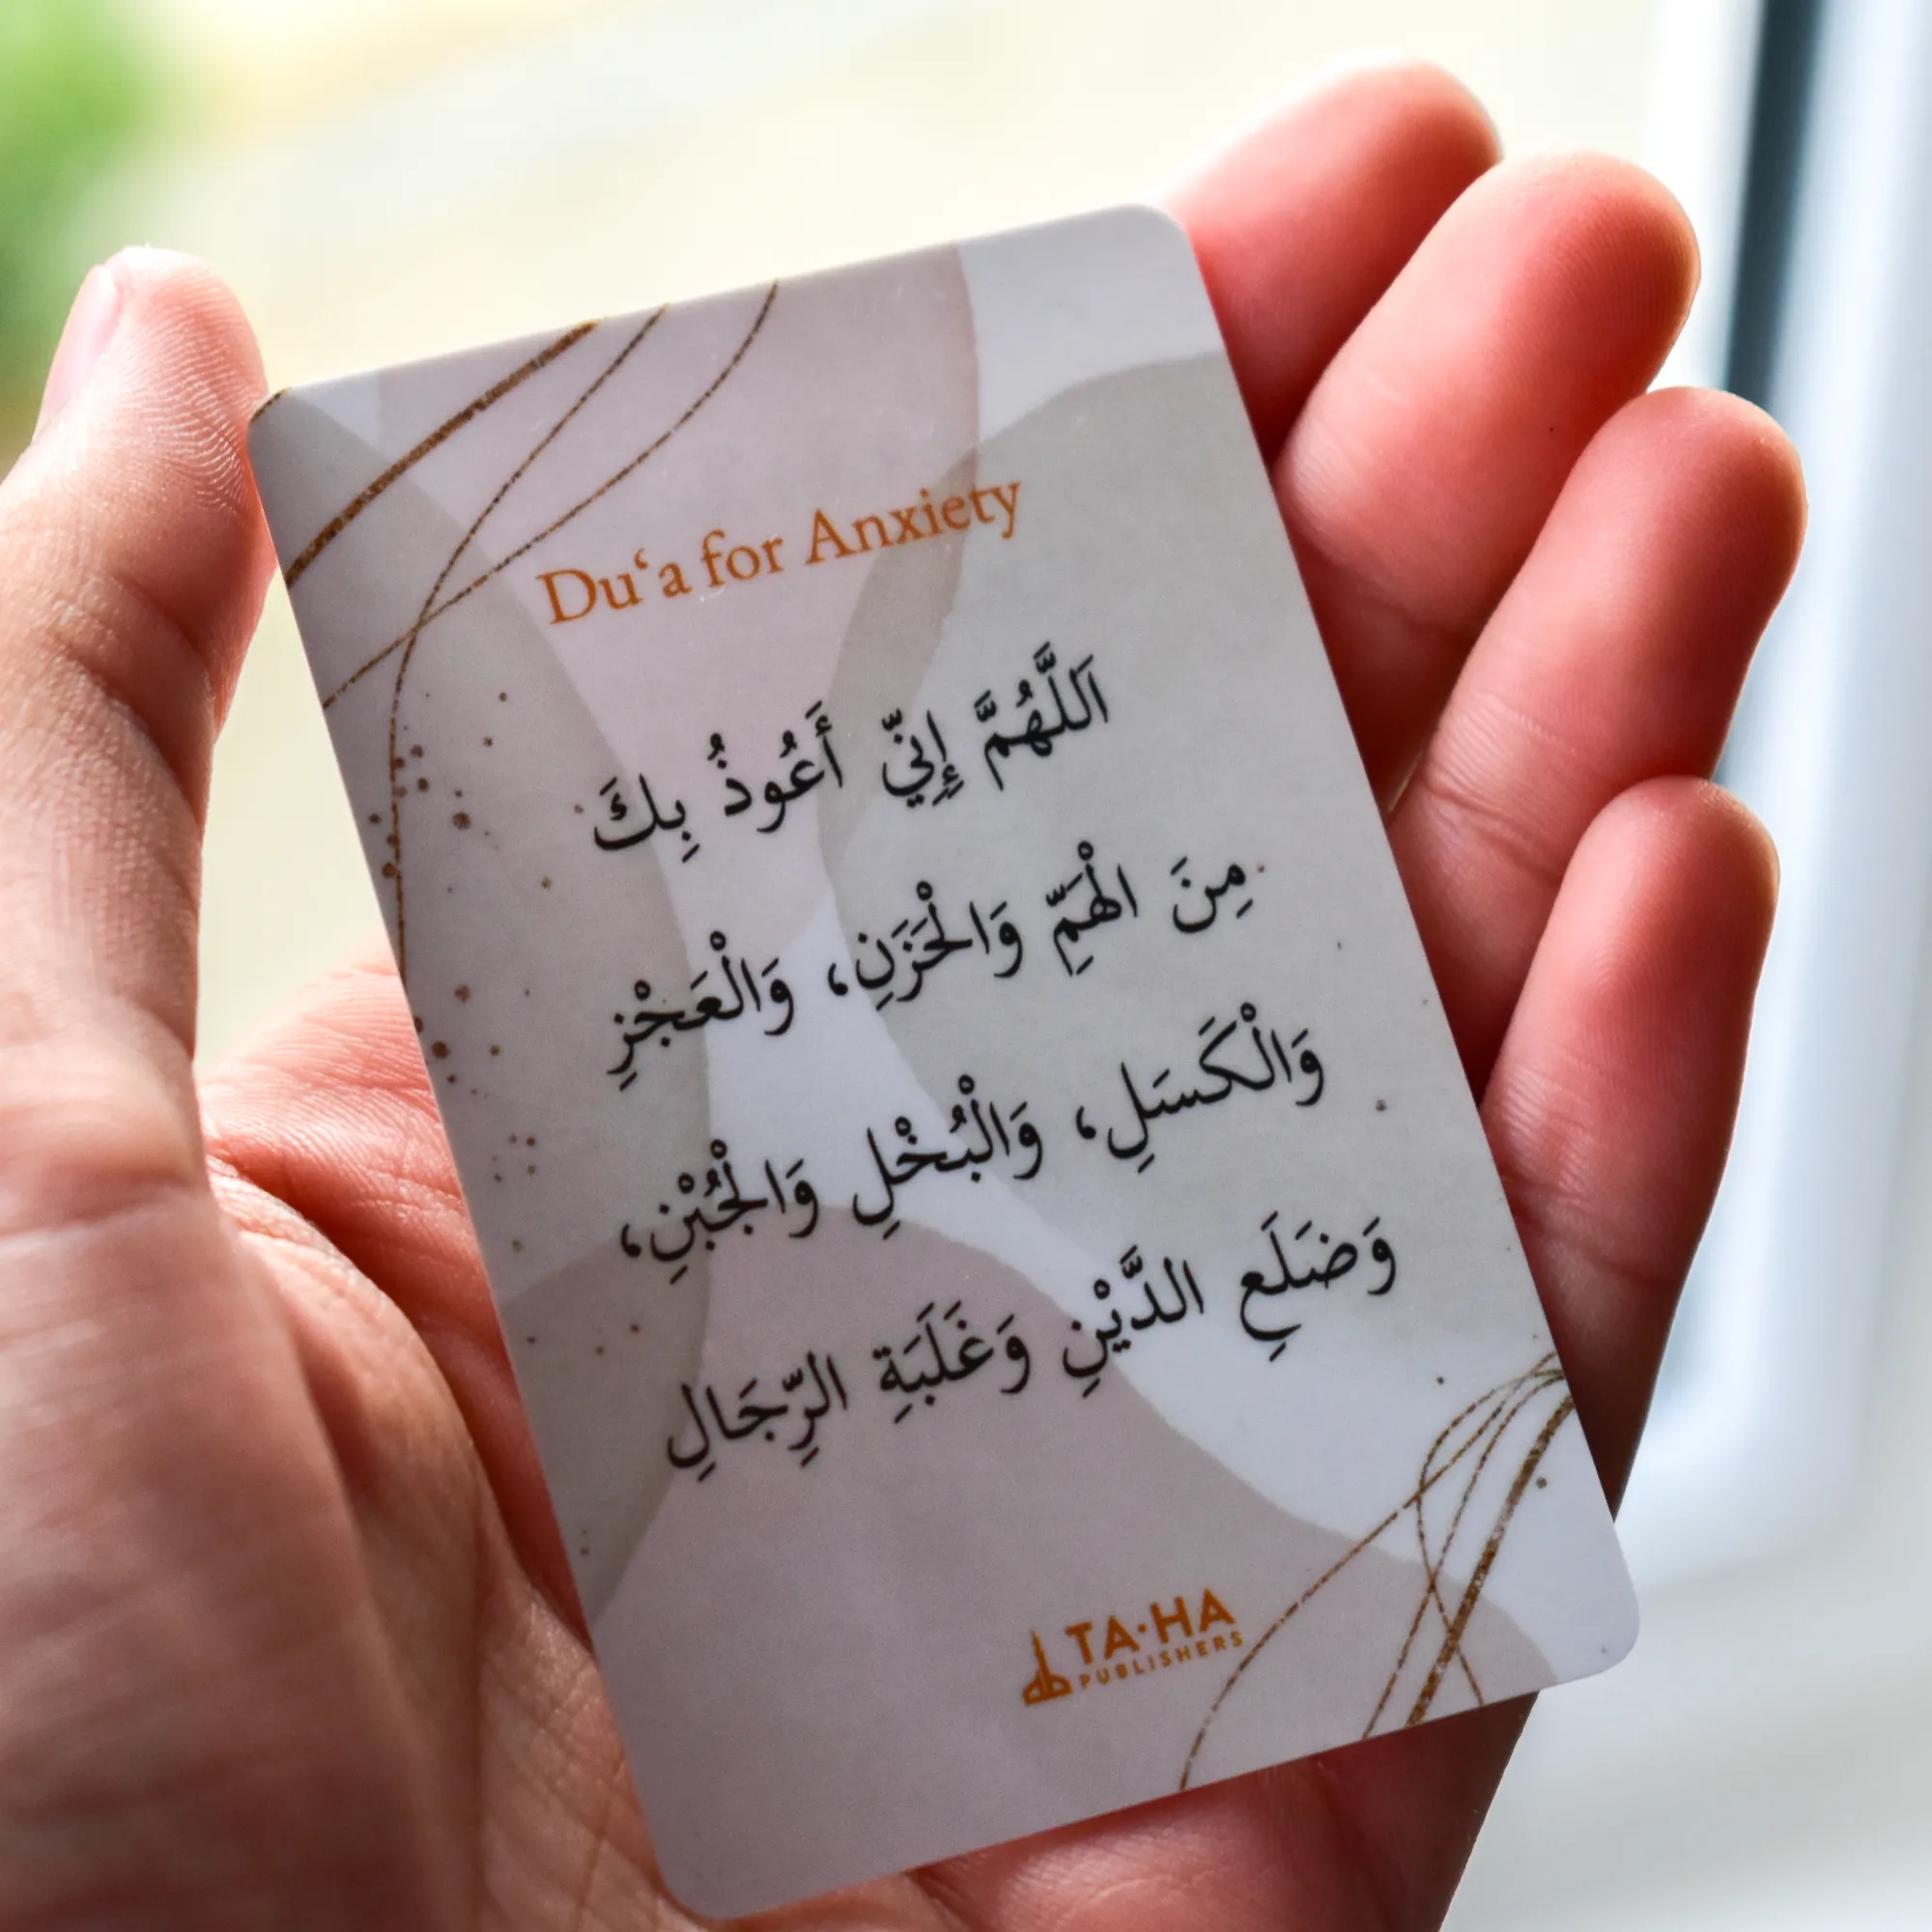 Du‘a for Anxiety
اَللَّهُمَّ إِنِّي أَعُوذُ بِكَ
مِنَ الْهَمِّ وَالْحَزَنِ، وَالْعَجْزِ
وَالْكَسَلِ، وَالْبُخْلِ وَالْجُبْنِ،
وَضَلَعِ الدَّيْنِ وَغَلَبَةِ الرِّجَالِ
TA·HA
PUBLISHERS